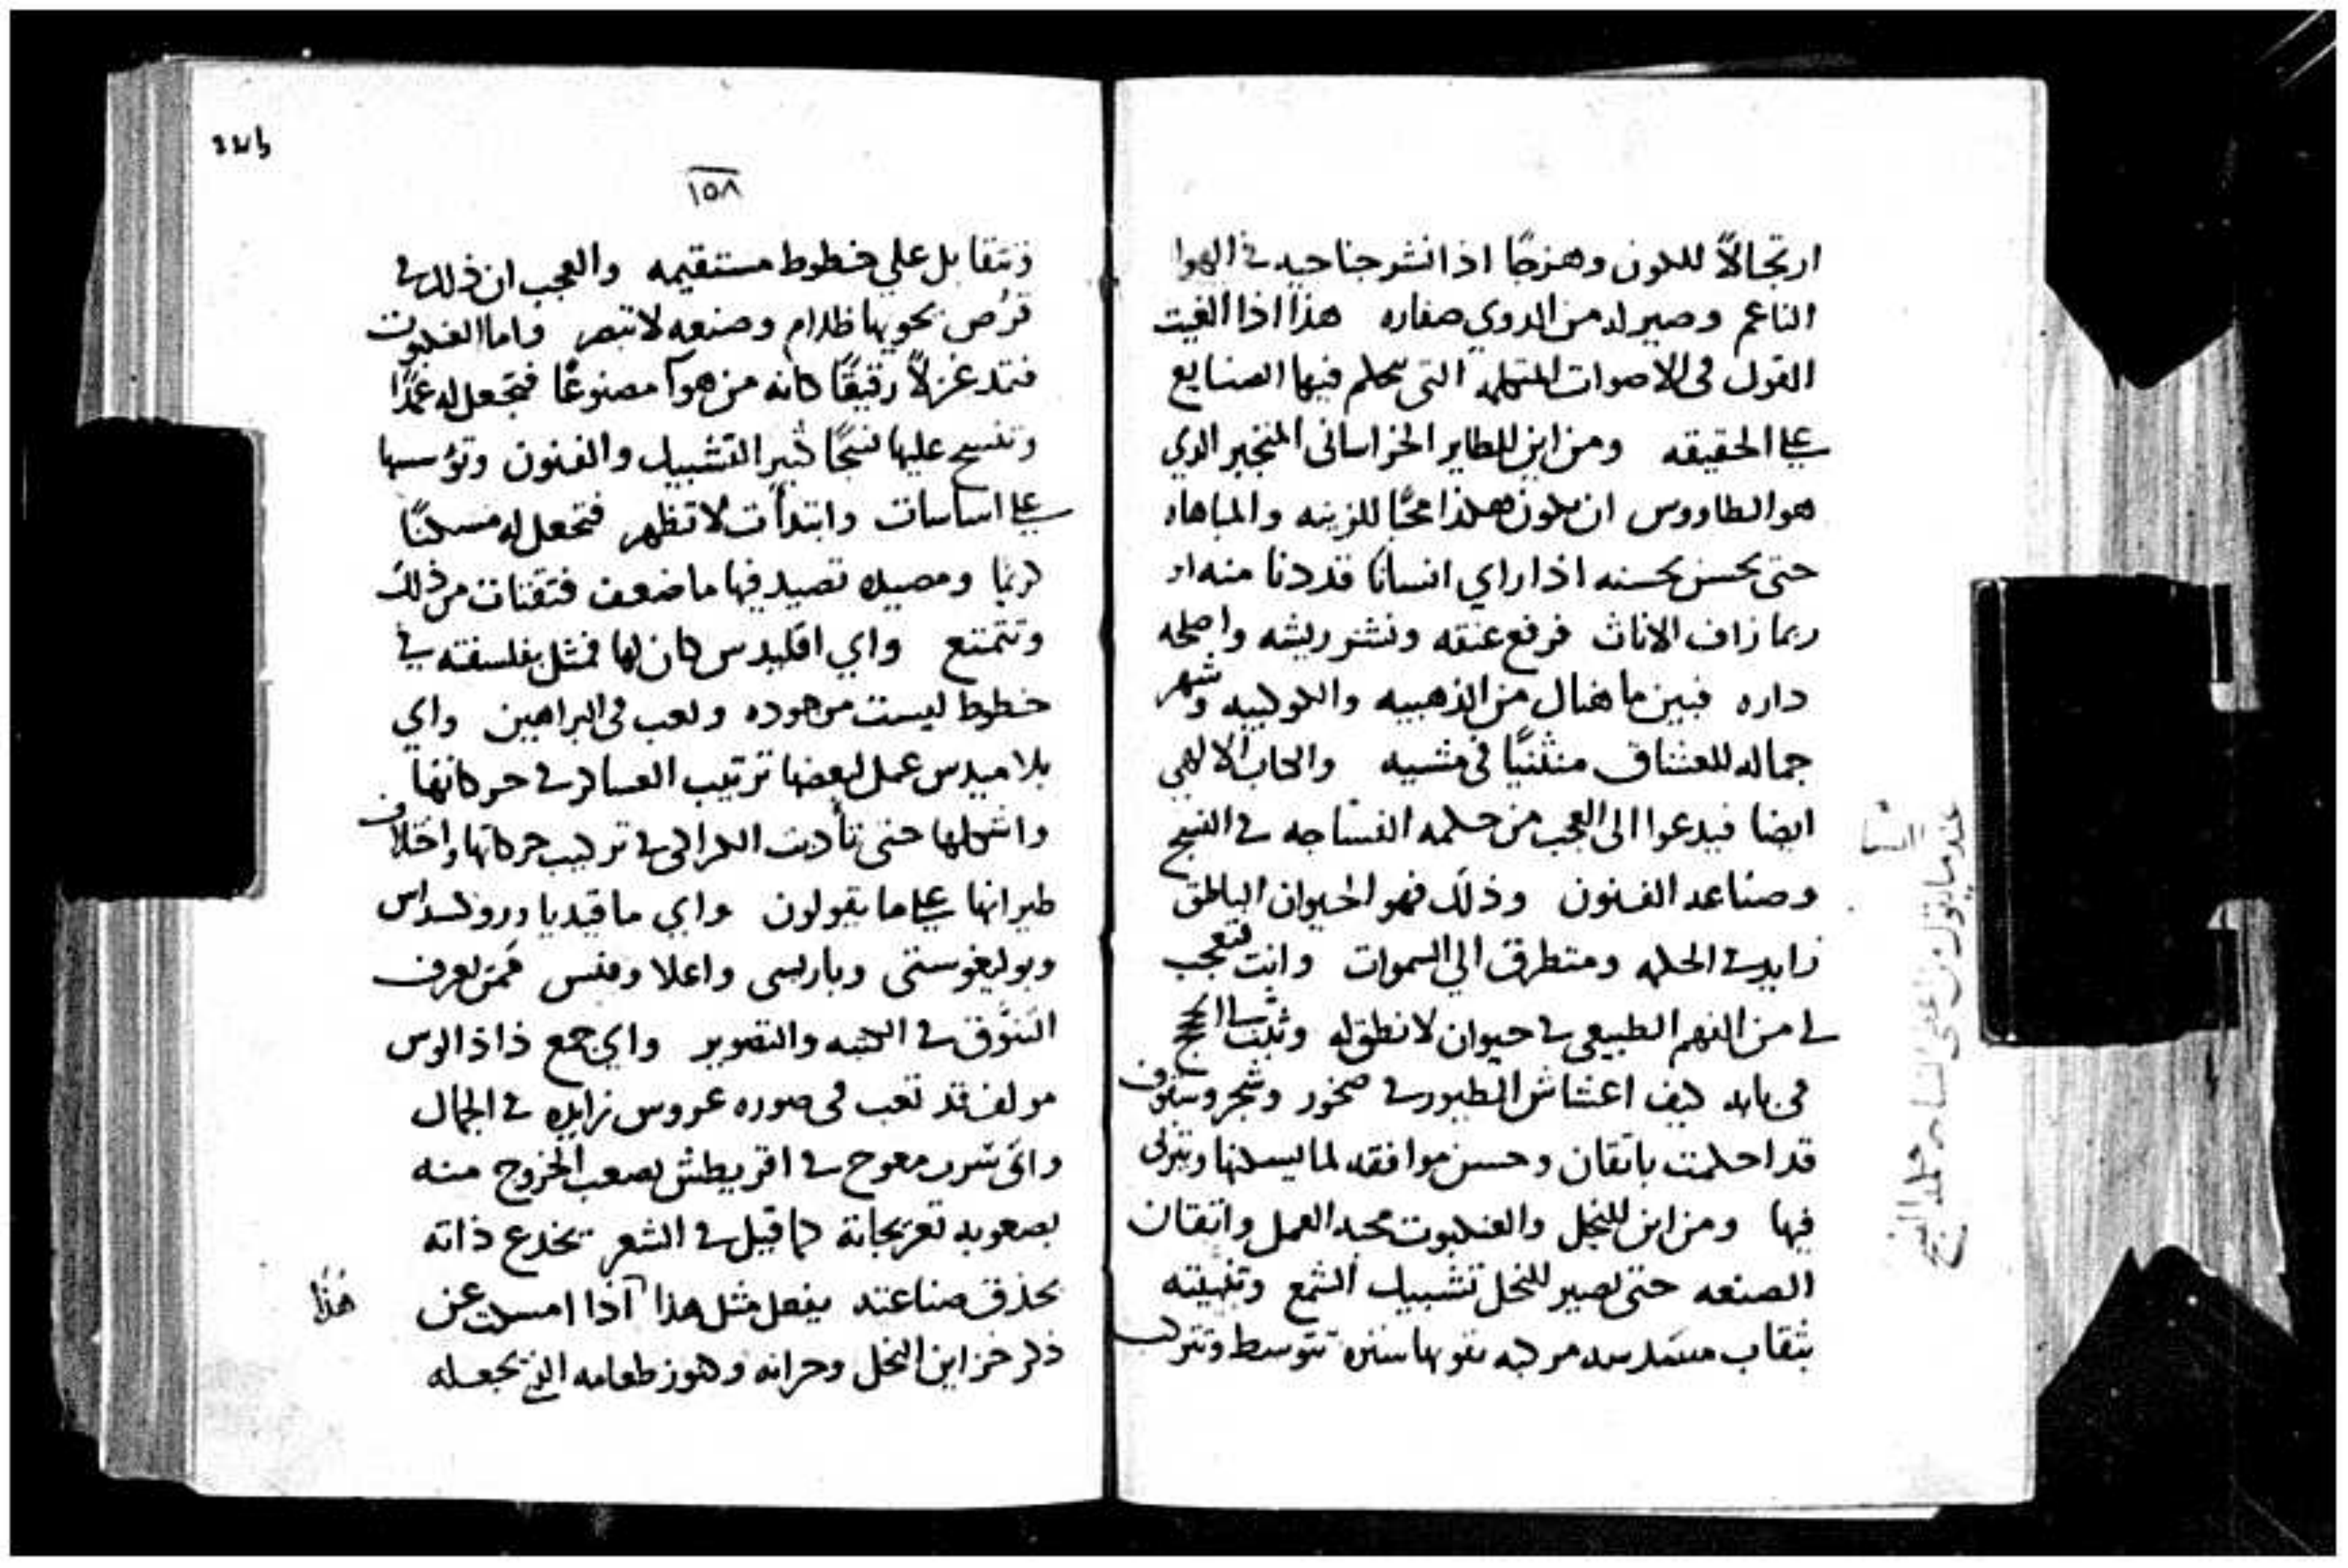 ارتجالاً للكون وهزجًا اذا نشر جناحيه في الهوا
الناعم وصير له من الدوي صفاره هذا اذا الفيت
القول في الاصوات المتكلمه التي تتكلم فيها الصنايع
على الحقيقه ومن اين للطاير الخراساني المتجبر الدي
هو الطاووس ان يكون هكذا محبًا للزينه والمباهاه
حتى يحسن بحسنه اذا راي انسانًا قد دنا منه او
ربما زاف الاناث فرفع عنقه ونشر ريشه واصلحه
داره فبين ما هنال من الذهبيه والكوكبيه وشهر
جماله للعشاق متثنيًا في مشيه والكتاب الالهي
ايضا فيدعوا الى العجب من حكمه النساجه في النسج
وصناعه الفنون وذلك فهو الحيوان الناطق
زايد في الحكمه ومتطرق الي السموات وانت فتعجب
لي من الفهم الطبيعي في حيوان لا نطق له وثبت الحجج
في بابه كيف اعشاش الطيور في صخور وشجر وسقوف
قد احكمت باتقان وحسن موافقه لما يسكنها ويتربى
فيها ومن اين للنحل والعنكبوت محبه العمل واتقان
الصنعه حتى يصير للنحل تشبيك الشمع وتثبيته
بثقاب مسدسه مركبه تتوسط وتترك
١٥٨
وتتقابل علي خطوط مستقيمه والعجب ان ذلك في
قرص يحويها ظلام وصنعه لا تبصر واما العنكبوت
فتمد غزلاً رقيقًا كانه من هوآ مصنوعًا فتجعل له عمدًا
وتنسج عليها نسجًا كثير التشبيك والفنون وتؤسسها
على اساسات وابتدآت لا تظهر فتجعل له مسكنًا
كريمًا ومصيده تصيد فيها ما ضعف فتقتات من ذلك
وتتمتع واي اقليدس كان لها فمثل بفلسفته في
خطوط ليست موجوده وتعب في البراهين واي
بلاميدس عمل لبعضها ترتيب العساكر في حركاتها
واشكلها حتى تأدت الكراكي في تركيب حركاتها واختلاف
طيرانها على ما يقولون واي ما قيديا
وبوليغوستي وباريسي واعلا ومنس فمن يعرف
التنوق في والتصوير واي جمع ذاذالوس
مولف قد تعب في صوره عروس زايده في الجمال
واي شرب معوج في اقريطش يصعب الخروج منه
بصعوبه تعريجاته كما قيل في الشعر تخدع ذاته
بحذق صناعته يفعل مثل هذا اذا امسكت عن
ذكر خزاين النحل وخزانه وكنوز طعامه الذي تجعله
هذا